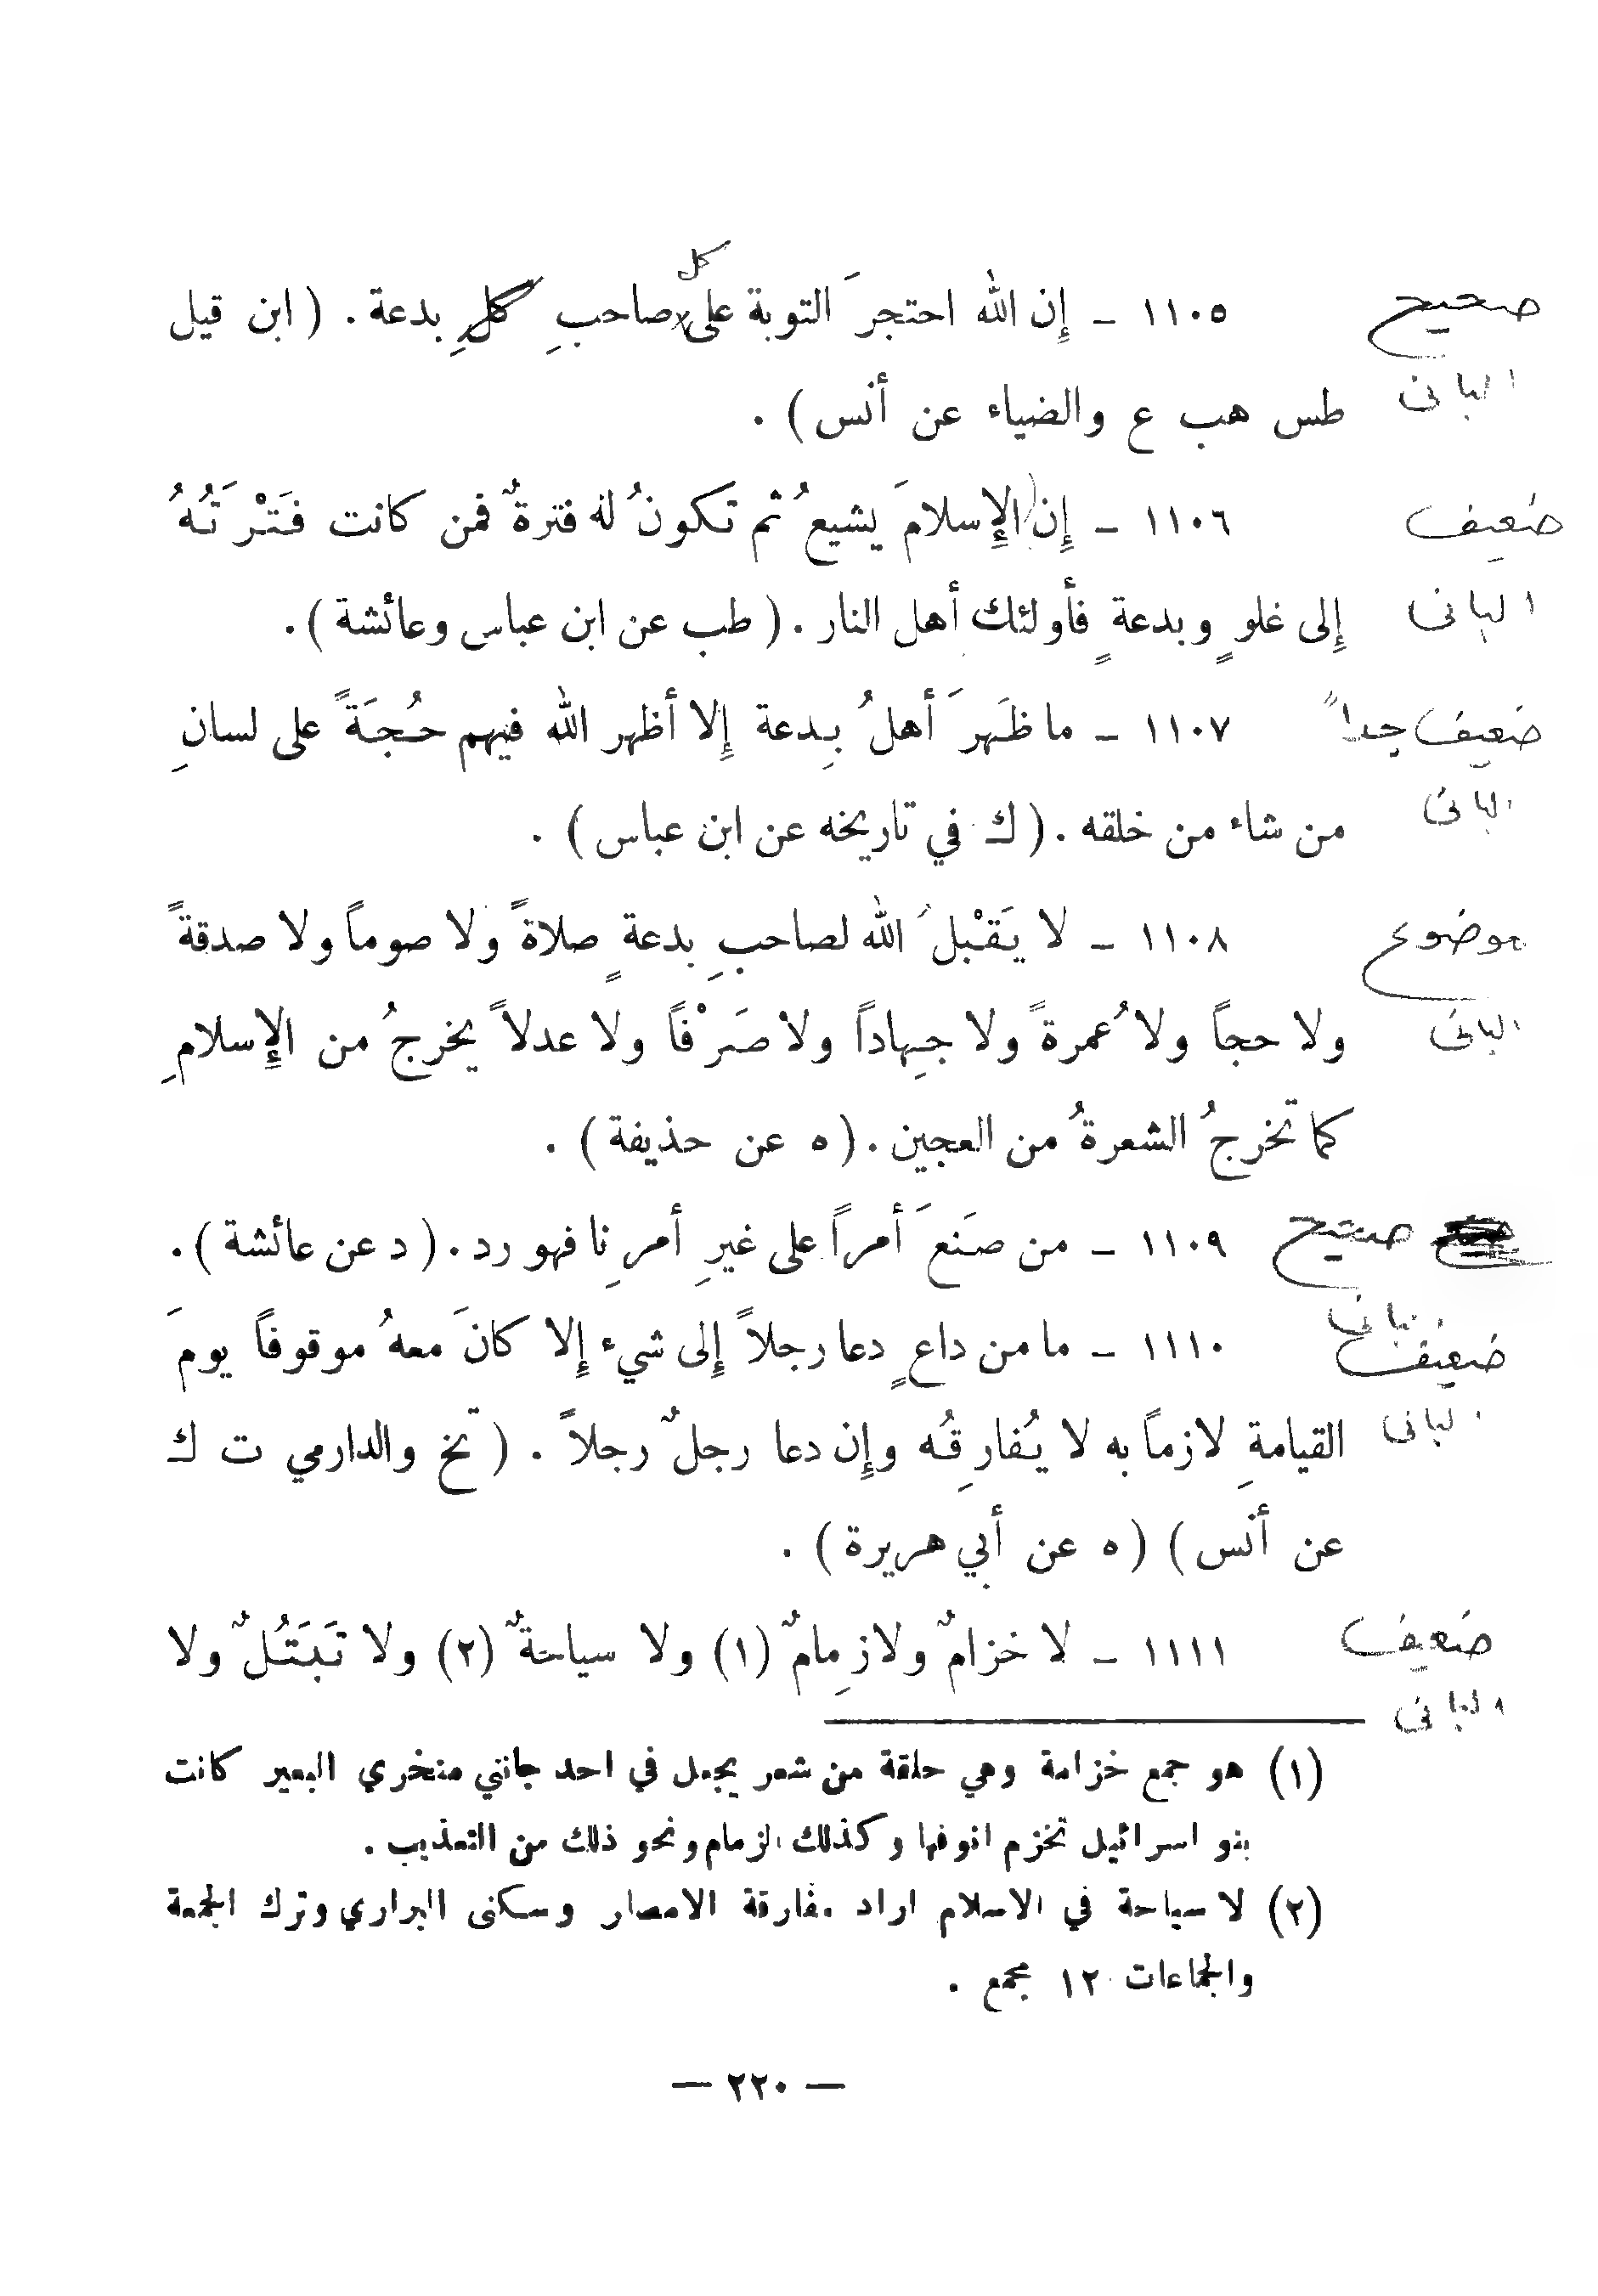 كل
صحيح ١١٠٥ – إِن الله احتجرَ التوبة على صاحبِ كلِ بدعة . ( ابن قيل
البانى طس هب ع والضياء عن أنس ) .
ضعيف ١١٠٦ – إِن الإِسلامَ يشيعُ ثم تكونُ له فترةٌ فمن كانت فَتَرْتُهُ
البانى إِلى غلوٍ وبدعةٍ فأولئك أهل النار . ( طب عن ابن عباس وعائشة ) .
ضعيف جداً ١١٠٧ – ما ظَهرَ أهلُ بِدعة إِلا أظهر الله فيهم حُجَةً على لسانِ
البانى من شاء من خلقه . ( ك في تاريخه عن ابن عباس ) .
موضوع ١١٠٨ – لا يَقْبلُ الله لصاحبِ بدعةٍ صلاةً ولا صوماً ولا صدقةً
البانى ولا حجاً ولا عُمرةً ولا جِهاداً ولا صَرْفاً ولا عدلاً يخرجُ من الإِسلامِ
كما تخرجُ الشعرةُ من العجين . ( ه عن حذيفة ) .
صحيح ١١٠٩ – من صنَعَ أمراً على غيرِ أمرِنا فهو رد . ( د عن عائشة ) .
البانى
ضعيف ١١١٠ – ما من داعٍ دعا رجلاً إِلى شيء إِلا كانَ معهُ موقوفاً يومَ
البانى القيامةِ لازماً به لا يُفارِقُه وإِن دعا رجلٌ رجلاً . ( تخ والدارمي ت ك
عن أنس ) ( ه عن أبي هريرة ) .
ضعيف ١١١١ – لا خزامٌ ولا زِمامٌ (١) ولا سياحةٌ (٢) ولا تَبَتُلٌ ولا
البانى
(١) هو جمع خزامة وهي حلقة من شعر يجعل في احد جانتي منخري البعير كانت
بنو اسرائيل تخزم انوفها وكذلك الزمام ونحو ذلك من التعذيب .
(٢) لا سياحة في الاسلام اراد مفارقة الامصار وسكنى البراري وترك الجمعة
والجماعات ١٢ مجمع .
— ٢٢٠ —